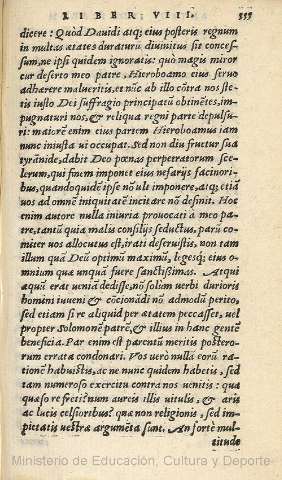 LIBER VIII. 335
dicere: Quòd Dauidi atq; eius posteris regnum
in multas ætates duraturũ diuinitus sit conces-
sum, ne ipsi quidem ignoratis: quò magis miror
cur deserto meo patre, Hieroboamo eius seruo
adhærere malueritis, et nũc ab illo cõtra nos ste-
tis iusto Dei suffragio principatũ obtinẽtes, im-
pugnaturi nos, & reliqua regni parte depulsu-
ri: maiorẽ enim eius partem Hieroboamus iam
nunc iniusta ui occupat. Sed non diu fruetur sua
tyrãnide, dabit Deo pœnas perpetratorum sce-
lerum, qui finem imponet eius nefarijs facinori-
bus, quandoquidẽ ipse nõ ult imponere, atq; etiã
uos ad omnẽ iniquitatẽ incitare nõ definit. Hoc
enim autore nulla iniuria prouocati à meo pa-
tre, tantũ quia malis consilijs seductus, parũ co-
miter uos allocutus est, irati deseruistis, non tam
illum quã Deũ optimũ maximũ, legesq; eius o-
mnium quæ unquã fuere sanctissimas. Atqui
æquũ erat ueniã dedisse, nõ solùm uerbi durioris
homini iuueni & cõcionãdi nõ admodũ perito,
sed etiam si re aliquid per ætatem peccasset, uel
propter Solomonẽ patrẽ, & illius in hanc gentẽ
beneficia. Par enim est parentũ meritis postero-
rum errata condonari. Vos uerò nulla eorũ ra-
tionẽ habuistis, ac ne nunc quidem habetis, sed
tam numeroso exercitu contra nos uenitis: qua
quæso re freti? num aureis illis uitulis, & aris
ac lucis celsioribus? quæ non religionis, sed im-
pietatis uestræ argumẽta sunt. An fortè mul-
titude
Ministerio de Educación, Cultura y Deporte